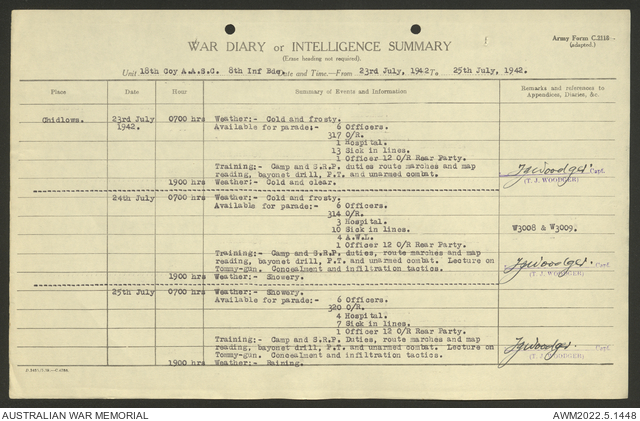 Army Form C.2118
(adapted.)
WAR DIARY or INTELLIGENCE SUMMARY
(Erase heading not required).
Unit 18th Coy A.A.S.C. 8th Inf Bde. Date and Time.—From 23rd July, 1942 To 25th July, 1942.
Place Date Hour Summary of Events and Information Remarks and references to
Appendices, Diaries, &c.
Chidlows. 23rd July 0700 hrs Weather:- Cold and frosty.
1942. Available for parade:- 6 Officers.
317 O/R.
1 Hospital.
13 Sick in lines.
1 Officer 12 O/R Rear Party.
Training:- Camp and S.R.P. duties route marches and map
reading, bayonet drill, P.T. and unarmed combat.
TJWoodger. Capt.
(T. J. WOODGER)
1900 hrs Weather:- Cold and clear.
24th July 0700 hrs Weather:- Cold and frosty.
Available for parade:- 6 Officers.
314 O/R.
3 Hospital.
10 Sick in lines. W3008 & W3009.
4 A.W.L.
1 Officer 12 O/R Rear Party.
Training:- Camp and S.R.P. duties, route marches and map
reading, bayonet drill, P.T. and unarmed combat. Lecture on
Tommy-gun. Concealment and infiltration tactics.
TJWoodger. Capt.
(T. J. WOODGER)
1900 hrs Weather:- Showery.
25th July 0700 hrs Weather:- Showery.
Available for parade:- 6 Officers.
320 O/R.
4 Hospital.
7 Sick in lines.
1 Officer 12 O/R Rear Party.
Training:- Camp and S.R.P. Duties, route marches and map
reading, bayonet drill, P.T. and unarmed combat. Lecture on
Tommy-gun. Concealment and infiltration tactics.
TJWoodger. Capt.
(T. J. WOODGER)
1900 hrs Weather:- Raining.
AUSTRALIAN WAR MEMORIAL AWM2022.5.1448